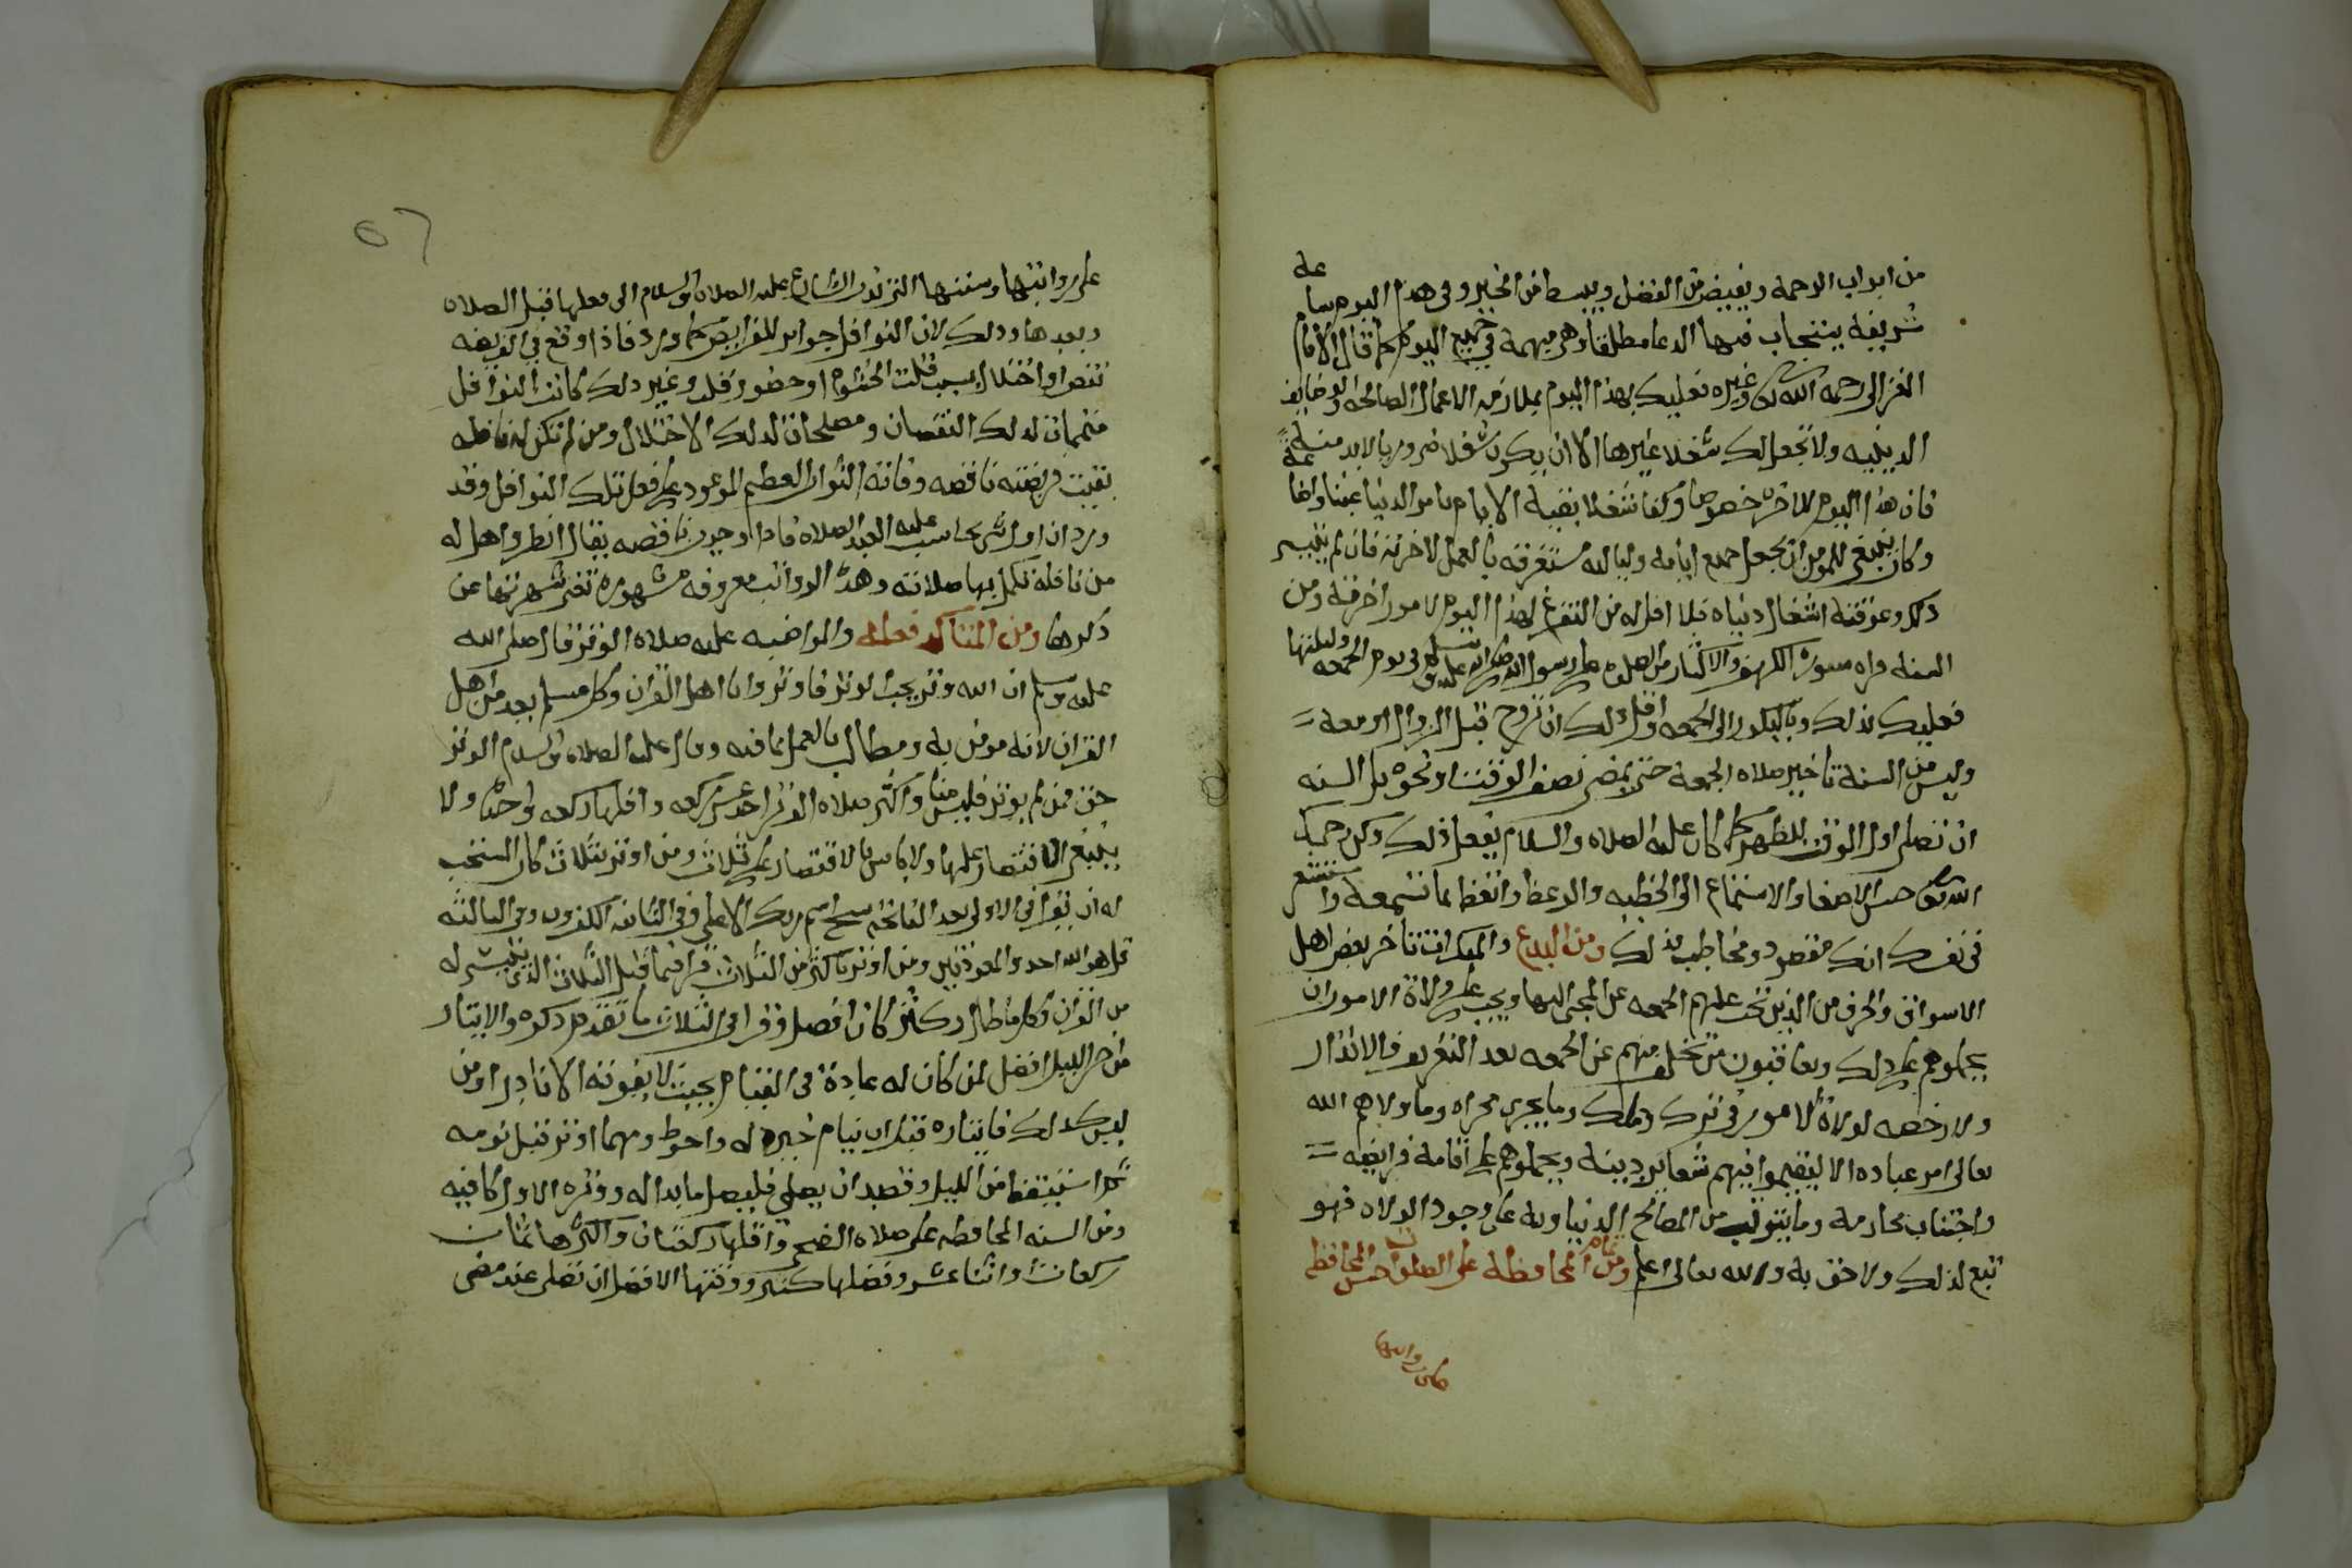 من ابواب الرحمة ويفيض من الفضل ويبسط من الخير وفي هذا اليوم ساعة
شريفة يستجاب فيها الدعا مطلقا وهي مبهمة في جميع اليوم كما قال الامام
الغزالي رحمه الله تعالى وغيره فعليك بهذا اليوم بملازمة الاعمال الصالحة والوظايف
الدينيه ولا تجعل لك شغلا غيرها الا ان يكون شغلا ضروريا لابد منه
فان هذا اليوم للاخرة خصوصا وكفا شغلا بقية الايام بامر الدنيا غبنا واضاعة
وكان ينبغي للمومن ان يجعل جميع ايامه ولياليه مستغرقه بالعمل لاخرته فان لم يتيسر
ذلك وعوقته اشغال دنياه فلا اقل له من التفرغ لهذا اليوم لامور اخرته ومن
السنه قراه سورة الكهف والاكثار من الصلوه على رسول الله صلى الله عليه وسلم في يوم الجمعه وليلتها
فعليك بذلك وبالبكور الى الجمعه واقل ذلك ان تروح قبل الزوال او معه
وليس من السنة تاخير صلاه الجمعة حتى يمضي نصف الوقت او نحوه بل السنه
ان تصلى اول الوقت للظهر كما كان عليه الصلاه والسلام يفعل ذلك وكن رحمك
الله تعالى حسن الاصغا والاستماع الى الخطبه والوعظ واتعظ بما تسمعه واستشعر
في نفسك انك مقصود ومخاطب بذلك ومن البدع والمنكرات تاخر بعض اهل
الاسواق والحرف من الذين تجب عليهم الجمعه عن المجي اليها ويجب على ولاة الامور ان
يحملوهم على ذلك ويعاقبون من تخلف منهم عن الجمعه بعد التعريف والانذار
ولا رخصه لولاة الامور في ترك ذلك وما يجري مجراه وما ولاهم الله
تعالى امر عباده الا ليقيموا فيهم شعاير دينه ويحملوهم على اقامة فرايضه
واجتناب محارمه وما يترتب من المصالح الدنياويه على وجود الولاه فهو
تبع لذلك ولاحق به والله تعالى اعلم ومن تمام المحافظة على الصلوات حسن المحافظه
على رواتبها
على رواتبها وسننها التي ندب الشارع عليه الصلاه والسلام الى فعلها قبل الصلاه
وبعدها وذلك لان النوافل جوابر للفرايض كما ورد فاذا وقع في الفريضه
نقص او اختلال بسبب قلت الخشوع او حضور قلب وغير ذلك كانت النوافل
متممات لذلك النقصان ومصلحات لذلك الاختلال ومن لم تكن له نافله
بقيت فريضته ناقصه وفاته الثواب العظيم الموعود على فعل تلك النوافل وقد
ورد ان اول شي يحاسب عليه العبد الصلاه فاذا وجدت ناقصه يقال انظروا هل له
من نافلة تكمل بها صلاته وهذه الرواتب معروفه مشهورة تغني شهرتها عن
ذكرها ومن المتاكد فعله والمواضبه عليه صلاه الوتر قال صلى الله
عليه وسلم ان الله وتر يحب الوتر فاوتروا يا اهل القران وكل مسلم يعد من اهل
القران لانه مومن به ومطالب بالعمل بما فيه وقال عليه الصلاه والسلام الوتر
حق فمن لم يوتر فليس منا واكثر صلاه الوتر احدعشر ركعه واقلها ركعه واحدة ولا
ينبغي الاقتصار عليها ولا باس بالاقتصار على ثلاث ومن اوتر بثلاث كان المستحب
له ان يقرا في الاولى بعد الفاتحة سبح اسم ربك الاعلى وفي الثانيه الكافرون وفي الثالثه
قل هو الله احد والمعوذتين ومن اوتر باكثر من الثلاث قرا فيما قبل الثلاث الذي تيسر له
من القران وكل ما طال وكثر كان افضل وقرا في الثلاث ما تقدم ذكره والايتار
من اخر الليل افضل لمن كان له عادة في القيام بحيث لا يفوته الا نادرا ومن
ليس كذلك فايتاره قبل ان ينام خير له واحوط ومهما اوتر قبل نومه
ثم استيقظ من الليل وقصد ان يصلي فليصل ما بدا له ووتره الاول كافيه
ومن السنه المحافظه على صلاه الضحى واقلها ركعتان واكثرها ثمان
ركعات او اثنا عشر وفضلها كثير ووقتها الافضل ان تصلى عند مضي